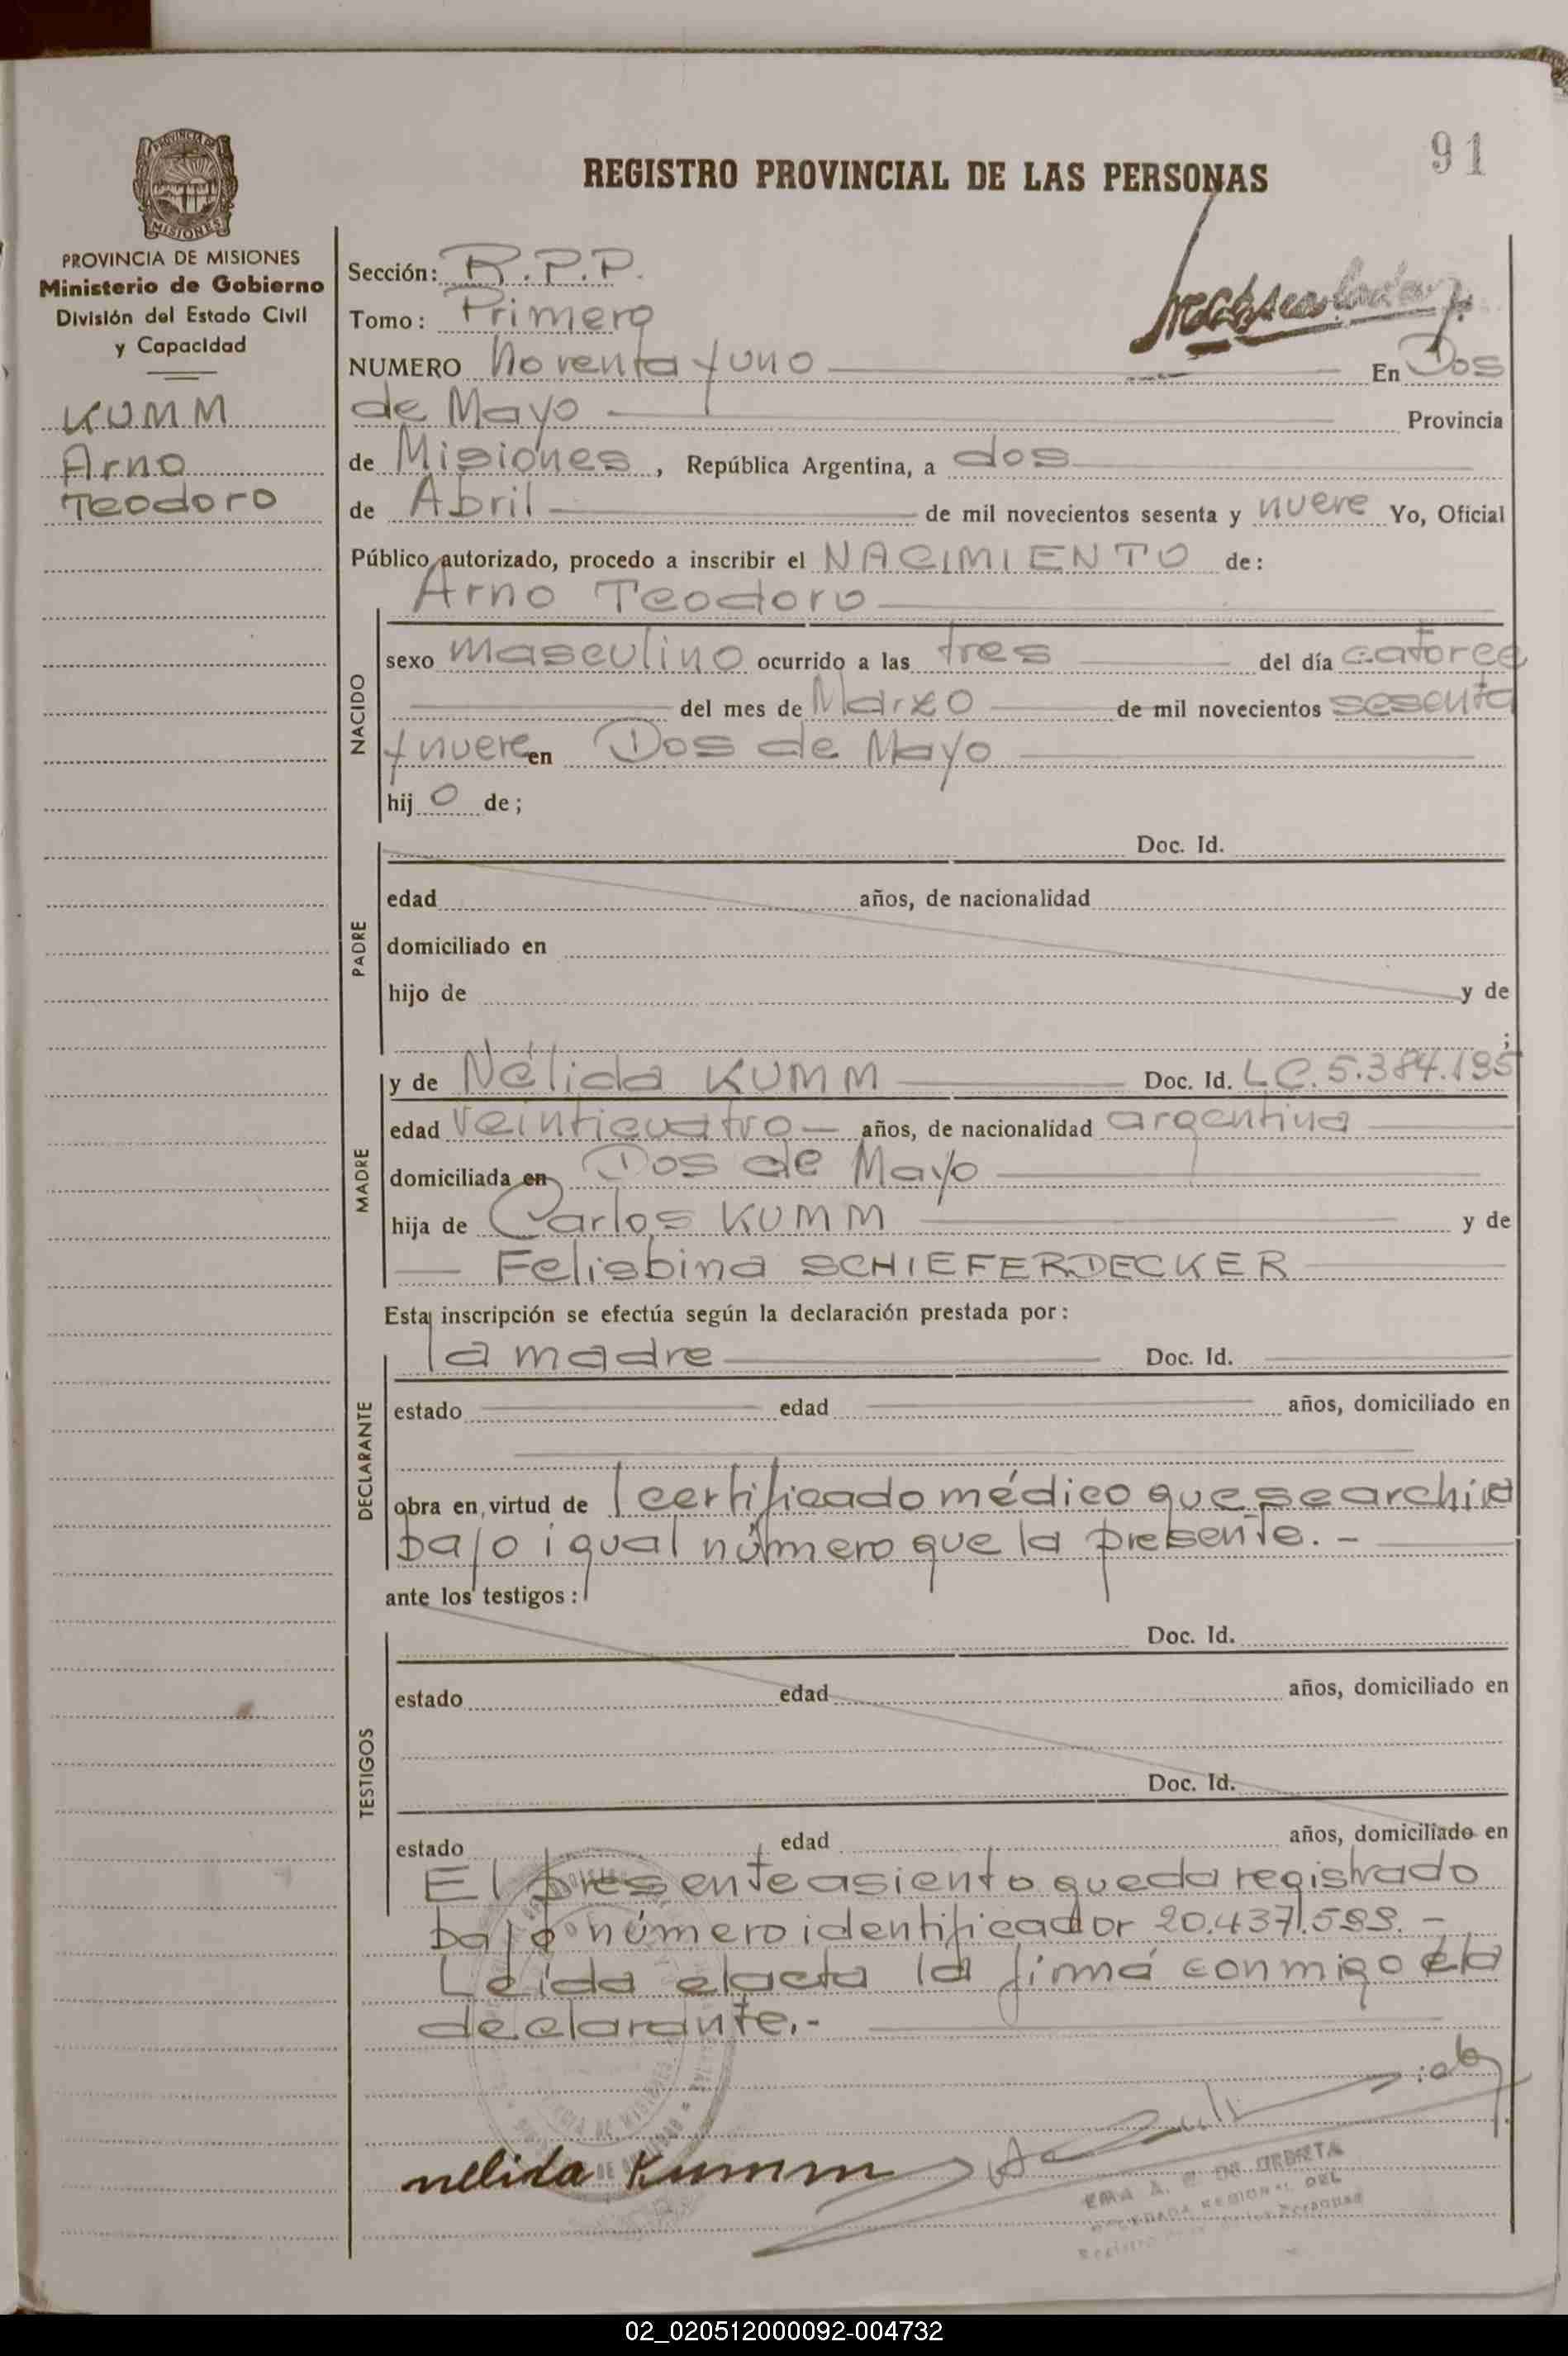 91
REGISTRO PROVINCIAL DE LAS PERSONAS
PROVINCIA DE MISIONES
PROVINCIA DE MISIONES
Ministerio de Gobierno
División del Estado Civil
y Capacidad
KUMM
Arno
Teodoro
Sección: R.P.P.
Tomo: Primero
NUMERO Noventa y uno En Dos
de Mayo Provincia
de Misiones, República Argentina, a dos
de Abril de mil novecientos sesenta y nueve Yo, Oficial
Público autorizado, procedo a inscribir el NACIMIENTO de:
Arno Teodoro
NACIDO
sexo masculino ocurrido a las tres del día catorce
del mes de Marzo de mil novecientos sesenta
y nueve en Dos de Mayo
hij o de;
PADRE
Doc. Id.
edad años, de nacionalidad
domiciliado en
hijo de y de
;
MADRE
y de Nélida KUMM Doc. Id. L.C. 5.384.195
edad veinticuatro años, de nacionalidad argentina
domiciliada en Dos de Mayo
hija de Carlos KUMM y de
Felisbina SCHIEFERDECKER
Esta inscripción se efectúa según la declaración prestada por:
DECLARANTE
la madre Doc. Id.
estado edad años, domiciliado en
obra en virtud de certificado médico que se archiva
bajo igual número que la presente.-
ante los testigos:
TESTIGOS
Doc. Id.
estado edad años, domiciliado en
Doc. Id.
estado edad años, domiciliado en
El presente asiento queda registrado
bajo número identificador 20.437.599.-
Leída el acta la firma conmigo la
declarante.-
nelida Kumm
EMA A. DE URBIETA
REGIONAL DEL
02_020512000092-004732